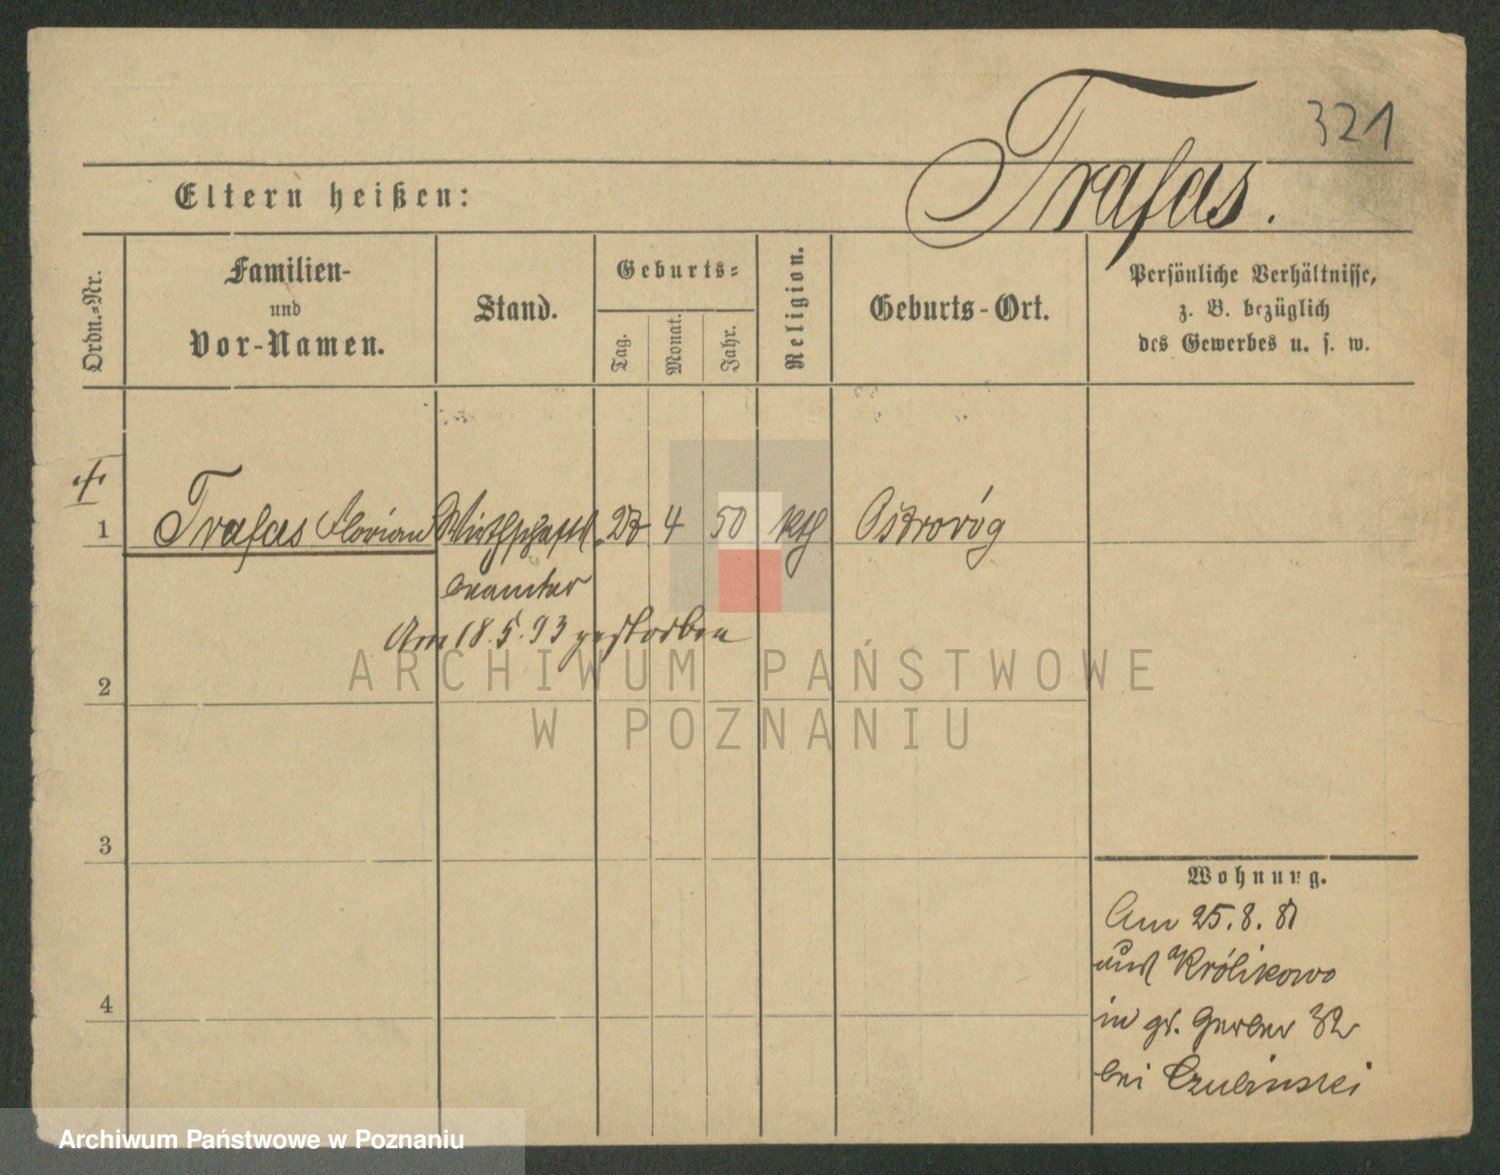 321
Trafas.
Eltern heißen:
Ordn.-Nr.
Familien-
und
Vor-Namen.
Stand.
Geburts-
Tag.
Monat.
Jahr.
Religion.
Geburts-Ort.
Persönliche Verhältnisse,
z. B. bezüglich
des Gewerbes u. s. w.
1 Trafas Florian Wirthschafts 4 50 kth Ostroróg
beamter
Am 18.5.93 gestorben
ARCHIWUM PAŃSTWOWE
W POZNANIU
2
3
4
Wohnung.
Am 25.8.
aus Królikowo
in gr. Gerber 32
bei Czubinski
Archiwum Państwowe w Poznaniu